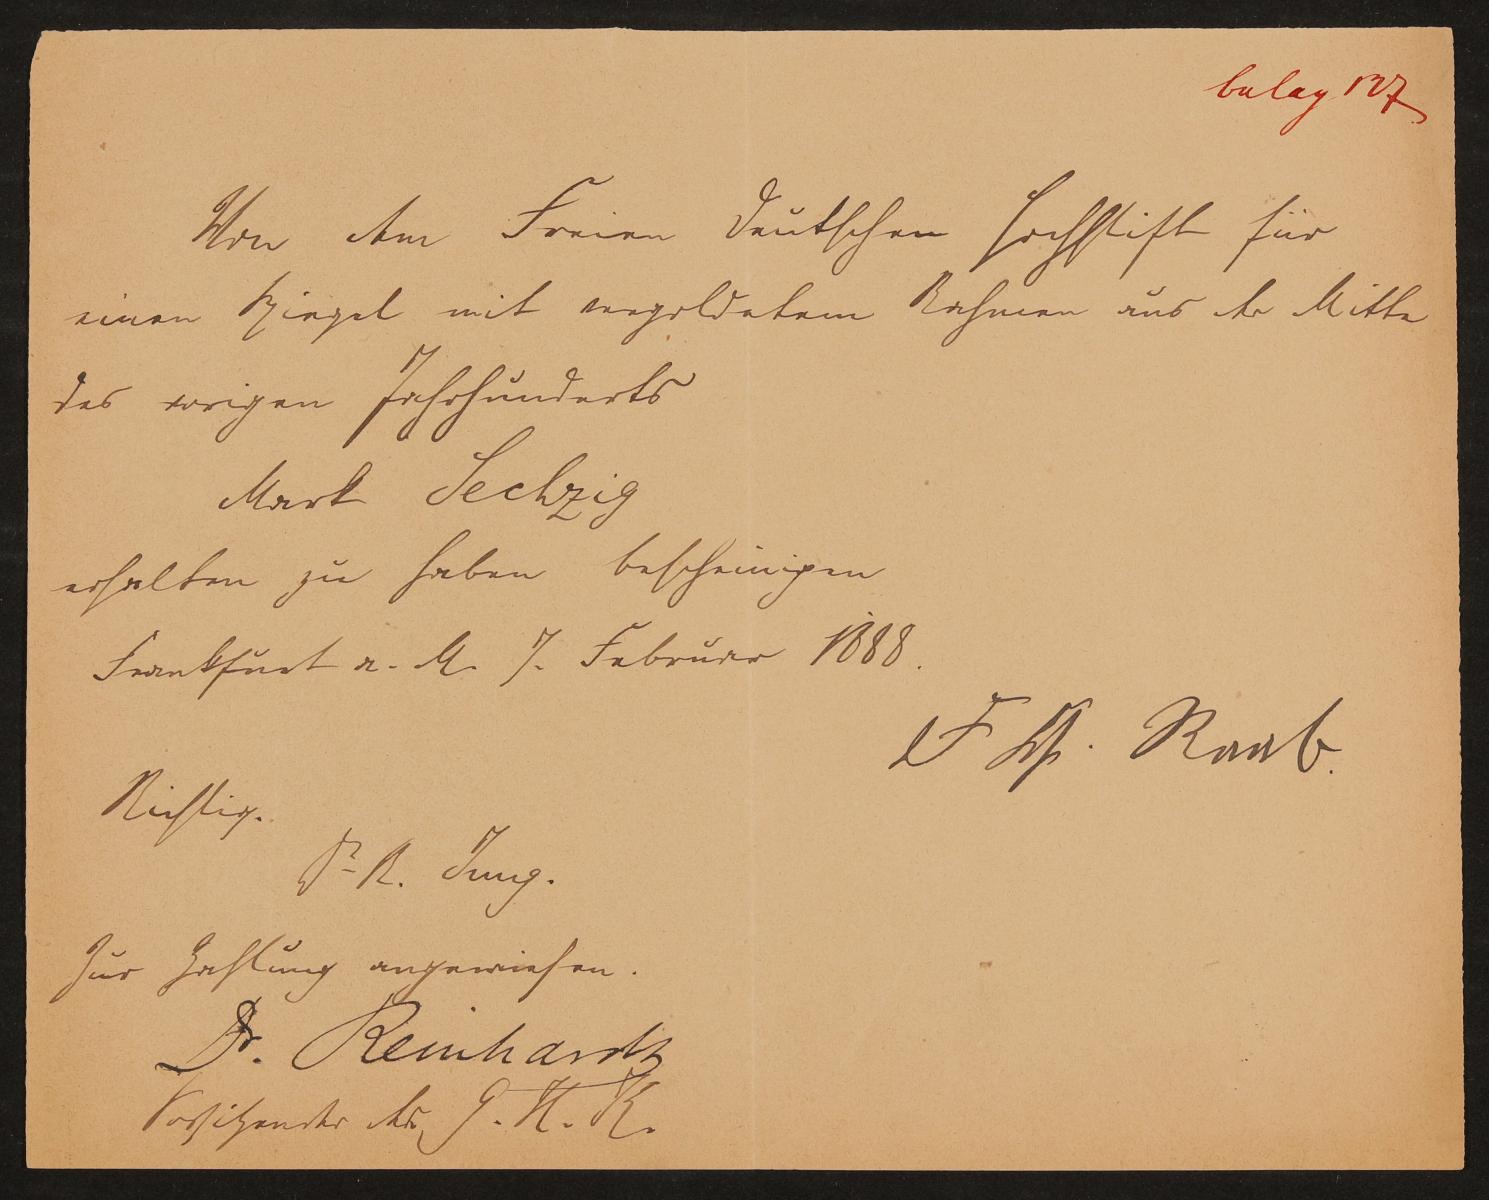 beleg 137
Von dem Freien Deutschen Hochstift für
einen Spiegel mit vergoldetem Rahmen aus der Mitte
des vorigen Jahrhunderts
Mark Sechzig
erhalten zu haben bescheinigen
Frankfurt a. M. 7. Februar 1888.
Raab.
Richtig.
Dr R. Jung.
Zur Zahlung angewiesen.
Dr. Reinhardt
Vorsitzender der G. H. K.